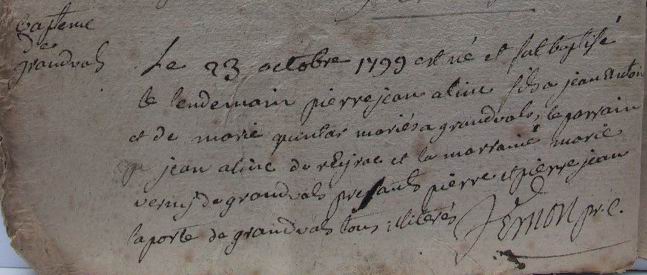 Bapteme
de
grandvals
Le 23 octobre 1799 est né et fut baptisé
le lendemain pierre jean aline fils a jean antoin
et de marie mariés a grandvals, le parrain
jean aline de reyrac et la marraine marie
de grandvals presants pierre et pierre jean
laporte de grandvals tous illiterés
pr. c.